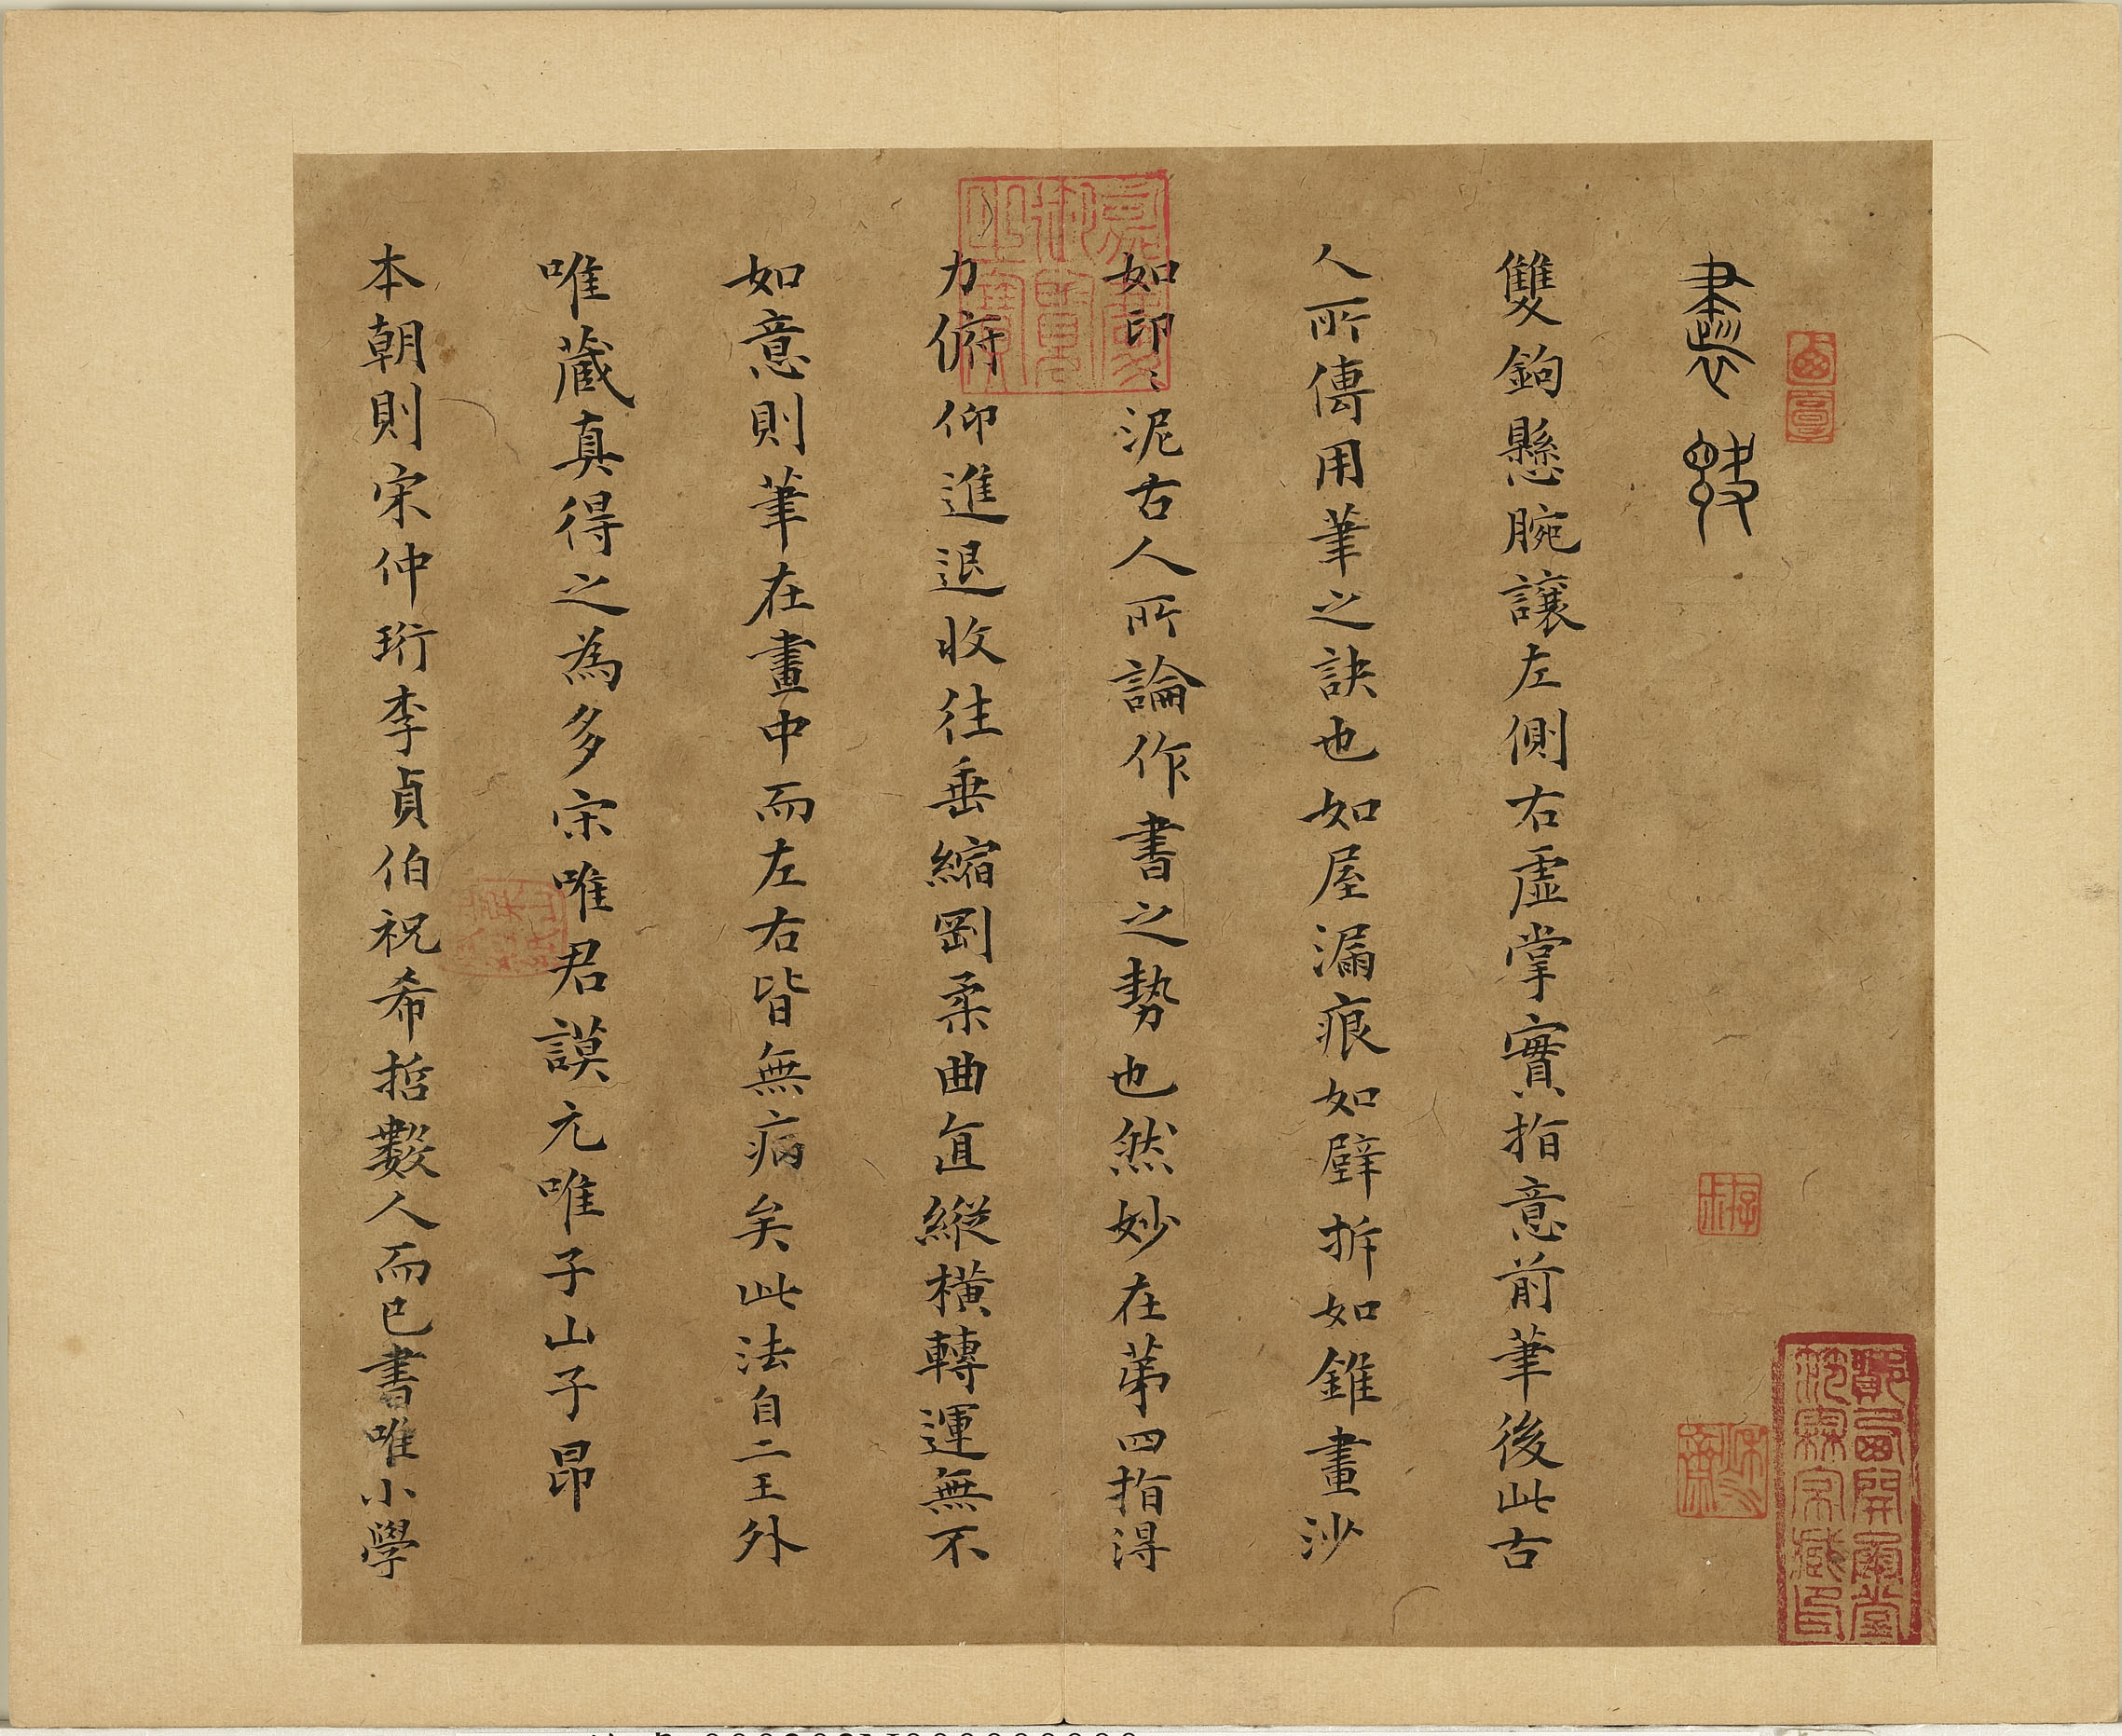 書訣
雙鉤懸腕讓左側右虛掌實指意前筆後此古
人所傳用筆之訣也如屋漏痕如壁拆如錐畫沙
如印〻泥古人所論作書之勢也然妙在苐四指得
力俯仰進退收往垂縮剛柔曲直縱橫轉運無不
如意則筆在畫中而左右皆無病矣此法自二王外
唯藏真得之為多宋唯君謨元唯子山子昂
本朝則宋仲珩李貞伯祝希哲數人而已書唯小學
嘉慶御覽之寶